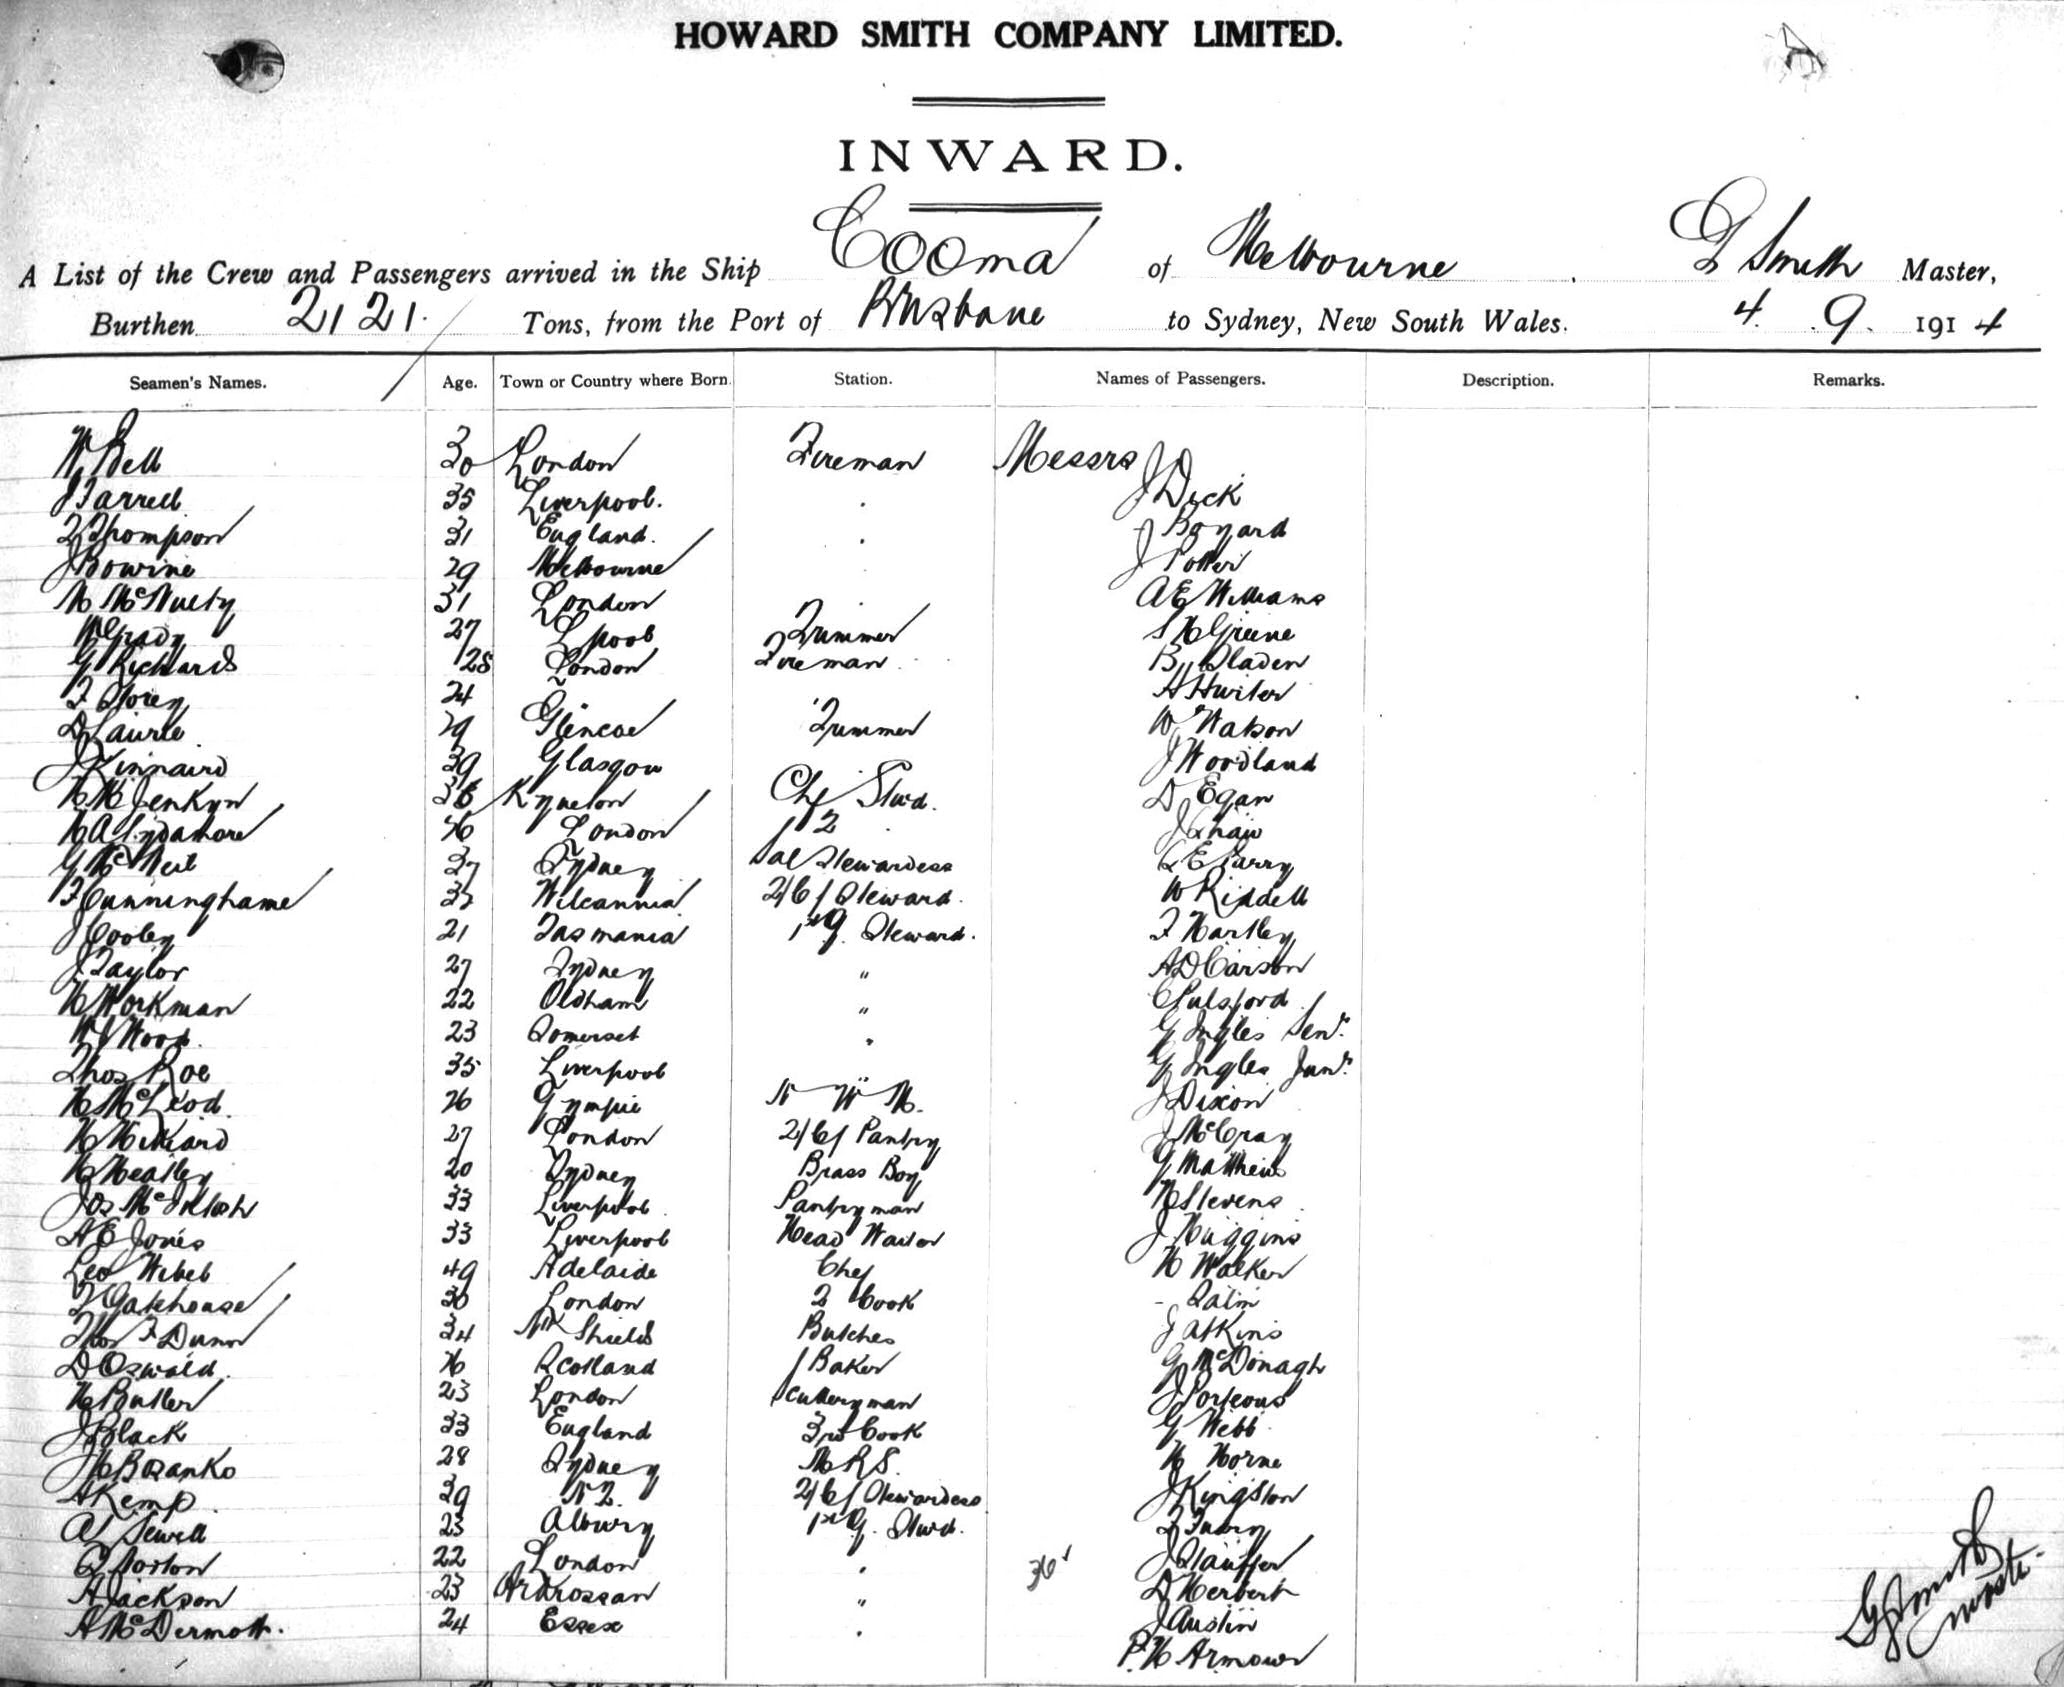 HOWARD SMITH COMPANY LIMITED.
INWARD.
A List of the Crew and Passengers arrived in the Ship Cooma of Melbourne. G Smith Master,
Burthen 2121. Tons, from the Port of Brisbane to Sydney, New South Wales. 4. 9. 1914
Seamen's Names. Age. Town or Country where Born. Station. Names of Passengers. Description. Remarks.
W Bell 30 London Fireman Messrs J Dick
J Farrell 35 Liverpool. J Boyard
F Thompson 31 England. J Potter
J Bowine 29 Melbourne A E Williams
M McNulty 31 London S H Greene
W Grady 27 Lpool Trimmer B Sladen
G Richards 28 London Fireman A Hwiler
F Storey 24 W Watson
D Laurie 29 Glencoe Trimmer J Woodland
J Kinnaird 39 Glasgow D Egan
H H Jenkyn 36 Kyneton Chf Stwd. J Shaw
H A Sydamore 26 London 1 2 L E Garry
G McNeil 37 Sydney Sal Stewardess W Riddell
F Cunninghame 37 Wilcannia 2/C/ Steward. F Hartley
J Cooley 21 Tasmania 1st G. Steward. A D Carson
J Taylor 27 Sydney " C Pulsford
H Workman 22 Oldham " G Ingles Senr.
W J Wood. 23 Somerset " G Ingles Junr.
Thos Roe 35 Liverpool " J Dixon
H McLeod. 26 Gympie N W M. J McCray
H Hilliard 27 London 2/C/ Pantry G Matthews
H Heatley 20 Sydney Brass Boy H Stevens
Jos McIntosh 33 Liverpool. Pantryman J Huggins
A E Jones 33 Liverpool Head Waiter H Walker
Leo Wibel 49 Adelaide Chef - Salin
F Gatehouse 30 London 2 Cook J Atkins
Thos F Dunn 34 Nth Shields Butcher G McDonagh
D Oswald. 26 Scotland 1 Baker J Porteous
H Butler 23 London Scullery man G Webb
J Black 33 England 3rd Cook H Horne
H Bozanko 28 Sydney M R S. J Kingston
A Kemp. 39 N Z. 2/C/ Stewardess F Furey
A Sewell 23 Albury 1st G. Stwd. J Stauffer
Q Norton 22 London 36 D Herbert
A Jackson 23 Ardrossan " J Austin
A McDermott. 24 Essex P. H Armour
G Smith
Master